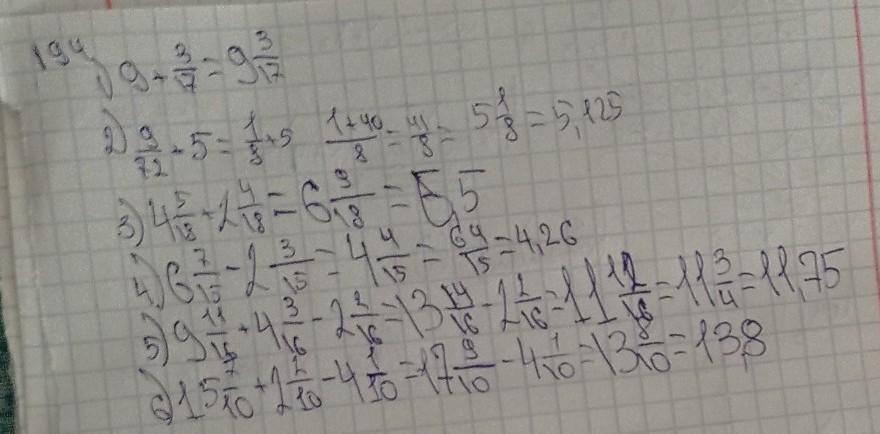 194
1) 9 + 3/17 = 9 3/17
2) 9/72 + 5 = 1/8 + 5 1+40/8 = 41/8 = 5 1/8 = 5,125
3) 4 5/18 + 2 4/18 = 6 9/18 = 6,5
4) 6 7/15 - 2 3/15 = 4 4/15 = 64/15 = 4,26
5) 9 11/16 + 4 3/16 - 2 2/16 = 13 14/16 - 2 2/16 = 11 12/16 = 11 3/4 = 11,75
6) 15 7/10 + 2 2/10 - 4 1/10 = 17 9/10 - 4 1/10 = 13 8/10 = 13,8